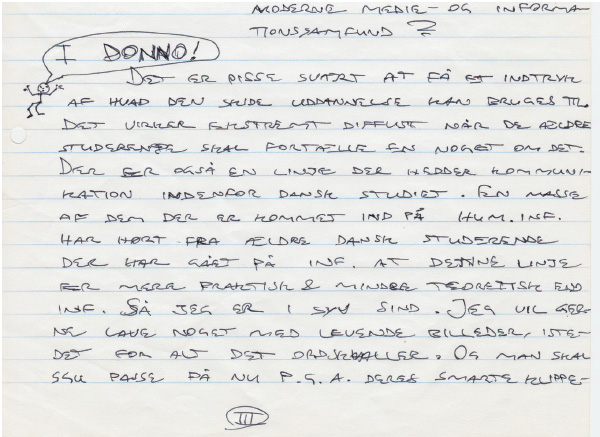 MODERNE MEDIE- OG INFORMA-
TIONSSAMFUND?
I DONNO!
DET ER PISSE SVÆRT AT FÅ ET INDTRYK
AF HVAD DEN SKIDE UDDANNELSE KAN BRUGES TIL.
DET VIRKER EKSTREMT DIFFUST NÅR DE ÆLDRE
STUDERENDE SKAL FORTÆLLE EN NOGET OM DET.
DER ER OGSÅ EN LINJE DER HEDDER KOMMUNI-
KATION INDENFOR DANSK STUDIET. EN MASSE
AF DEM DER ER KOMMET IND PÅ HUM. INF.
HAR HØRT FRA ÆLDRE DANSK STUDERENDE
DER HAR GÅET PÅ INF. AT DENNE LINJE
ER MERE PRAKTISK & MINDRE TEORETISK END
INF. SÅ JEG ER I SYV SIND. JEG VIL GER-
NE LAVE NOGET MED LEVENDE BILLEDER, ISTE-
DET FOR ALT DET ORDSKVALLER. OG MAN SKAL
SGU PASSE PÅ NU P.G.A. DERES SMARTE KLIPPE-
III